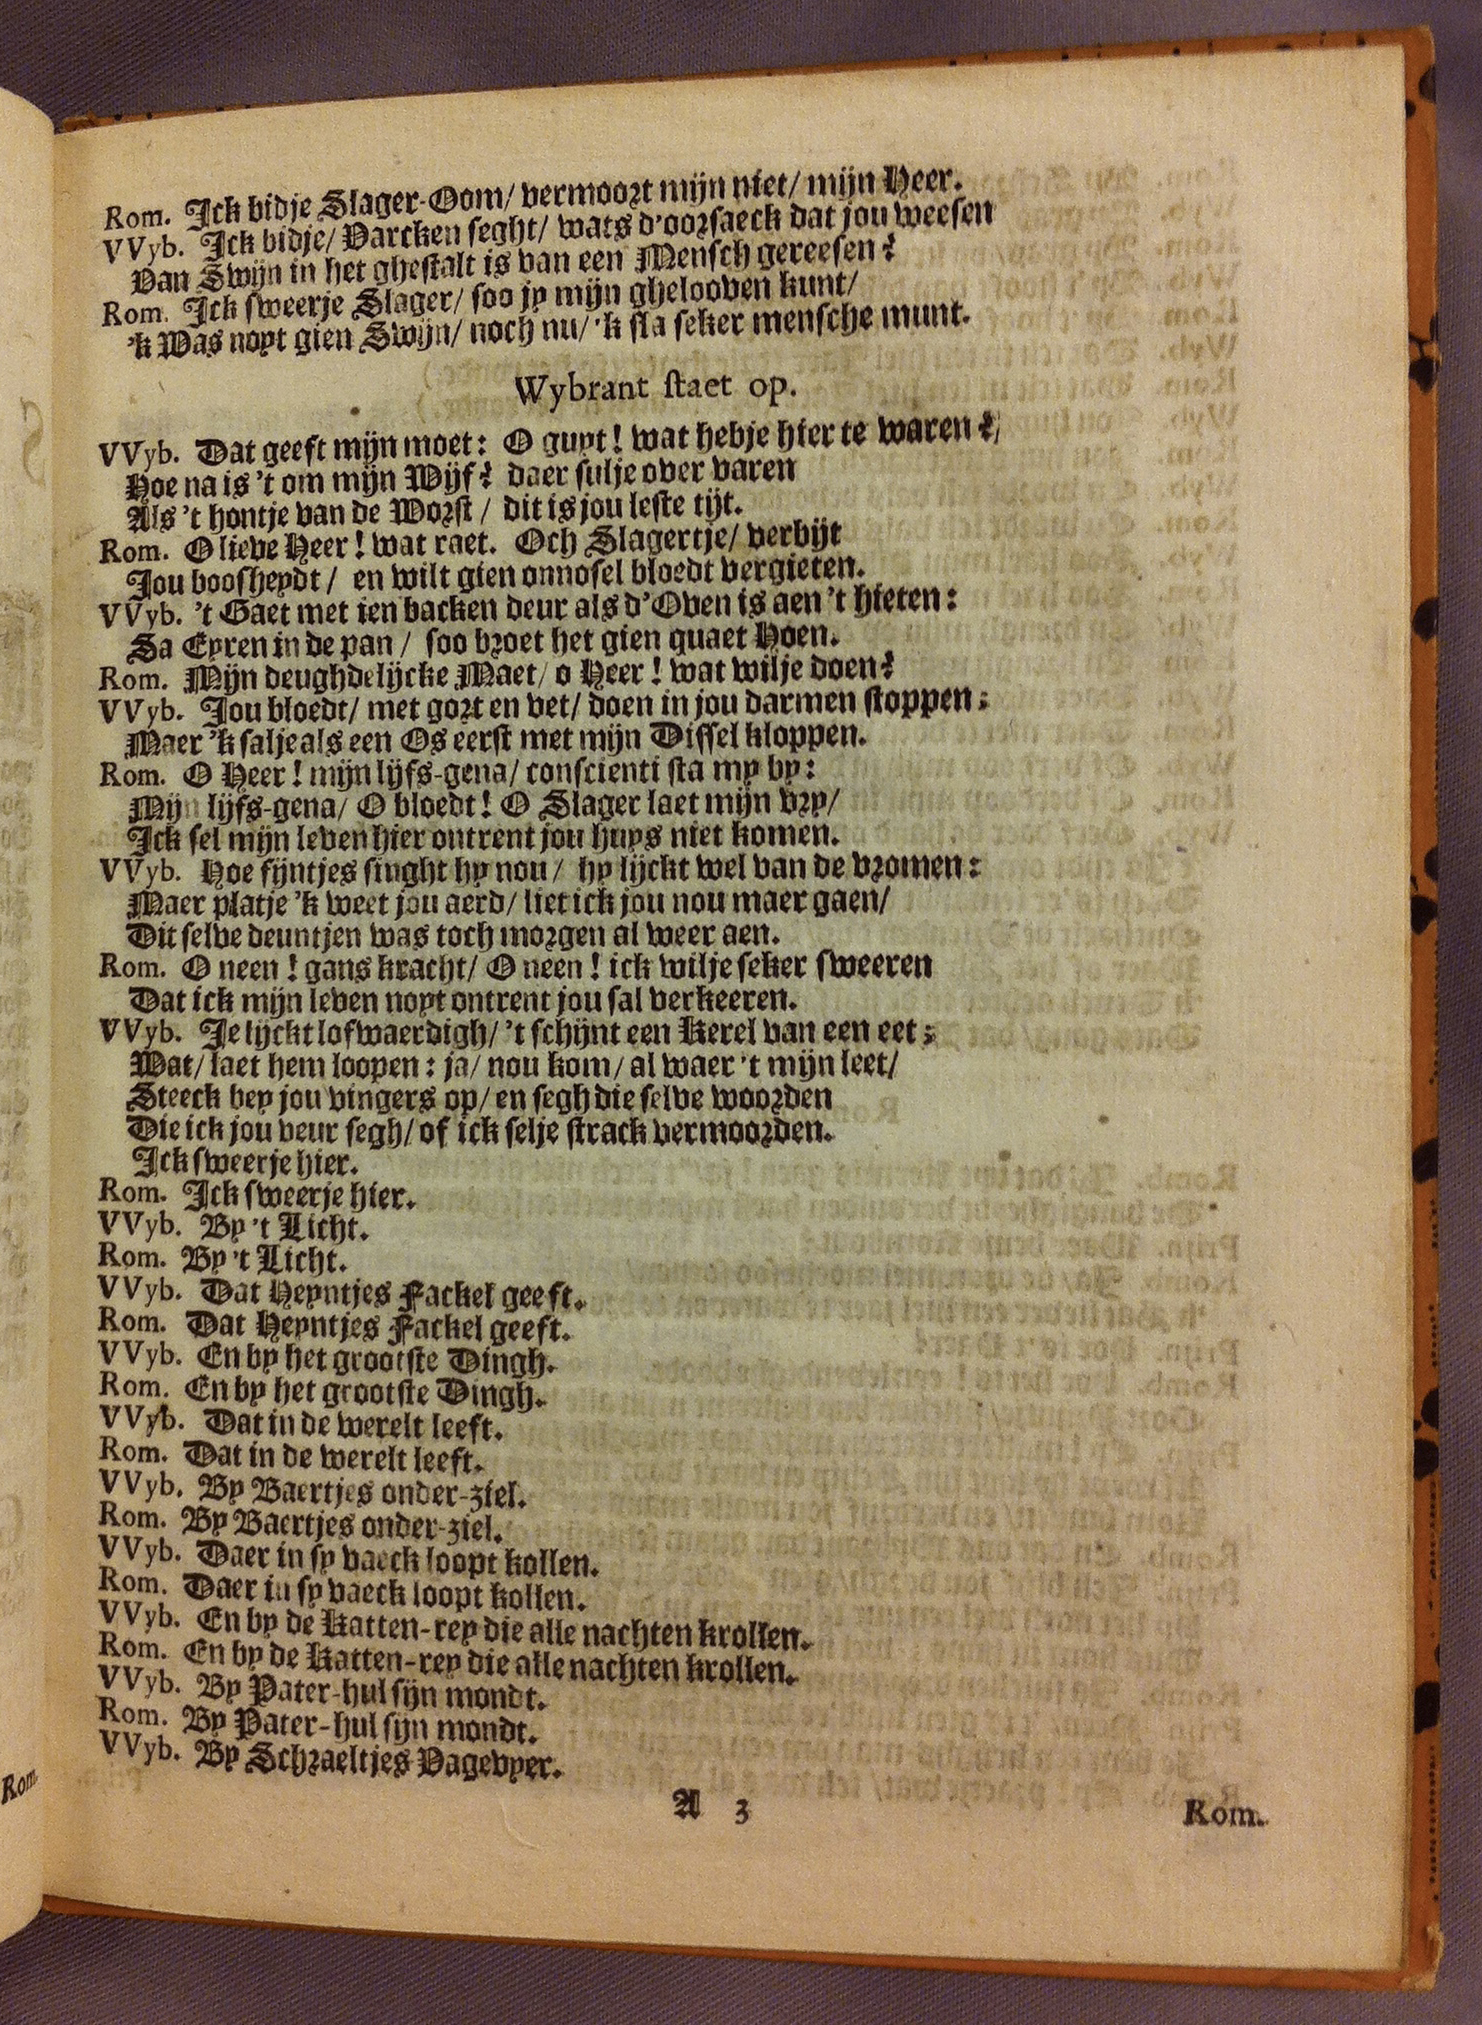 Rom. Ick bidje Slager-Oom/ vermoort mijn niet/ mijn Heer.
VVyb. Ick bidje/ Varcken seght/ wats d'oorsaeck dat jou weesen
Van Swijn in het ghestalt is van een Mensch gereesen?
Rom. Ick sweerje Slager/ soo jy mijn ghelooven kunt/
'k Was noyt gien Swijn/ noch nu/ 'k sla seker mensche munt.
Wybrant staet op.
VVyb. Dat geeft mijn moet: O guyt! wat hebje hier te waren?/
Hoe na is 't om mijn Wijf? daer sulje over varen
Als 't hontje van de Worst / dit is jou leste tijt.
Rom. O lieve Heer! wat raet. Och Slagertje/ verbijt
Jou boosheydt / en wilt gien onnosel bloedt vergieten.
VVyb. 't Gaet met ien backen deur als d'Oven is aen 't hieten:
Sa Eyren in de pan / soo broet het gien quaet Hoen.
Rom. Mijn deughdelijcke Maet/ o Heer! wat wilje doen?
VVyb. Jou bloedt/ met gort en vet/ doen in jou darmen stoppen;
Maer 'k salje als een Os eerst met mijn Dissel kloppen.
Rom. O Heer! mijn lijfs-gena/ conscienti sta my by:
Mijn lijfs-gena/ O bloedt! O Slager laet mijn vry/
Ick sel mijn leven hier ontrent jou huys niet komen.
VVyb. Hoe fijntjes singht hy nou / hy lijckt wel van de vromen:
Maer platje 'k weet jou aerd/ liet ick jou nou maer gaen/
Dit selve deuntjen was toch morgen al weer aen.
Rom. O neen! gans kracht/ O neen! ick wilje seker sweeren
Dat ick mijn leven noyt ontrent jou sal verkeeren.
VVyb. Je lijckt lofwaerdigh/ 't schijnt een Kerel van een eet;
Wat/ laet hem loopen: ja/ nou kom/ al waer 't mijn leet/
Steeck bey jou vingers op/ en segh die selve woorden
Die ick jou veur segh/ of ick selje strack vermoorden.
Ick sweerje hier.
Rom. Ick sweerje hier.
VVyb. By 't Licht.
Rom. By 't Licht.
VVyb. Dat Heyntjes Fackel geeft.
Rom. Dat Heyntjes Fackel geeft.
VVyb. En by het grootste Dingh.
Rom. En by het grootste Dingh.
VVyb. Dat in de werelt leeft.
Rom. Dat in de werelt leeft.
VVyb. By Baertjes onder-ziel.
Rom. By Baertjes onder-ziel.
VVyb. Daer in sy vaeck loopt kollen.
Rom. Daer in sy vaeck loopt kollen.
VVyb. En by de Katten-rey die alle nachten krollen.
Rom. En by de Katten-rey die alle nachten krollen.
VVyb. By Pater-hul sijn mondt.
Rom. By Pater-hul sijn mondt.
VVyb. By Schraeltjes Vagevyer.
A 3
Rom.
Rom.